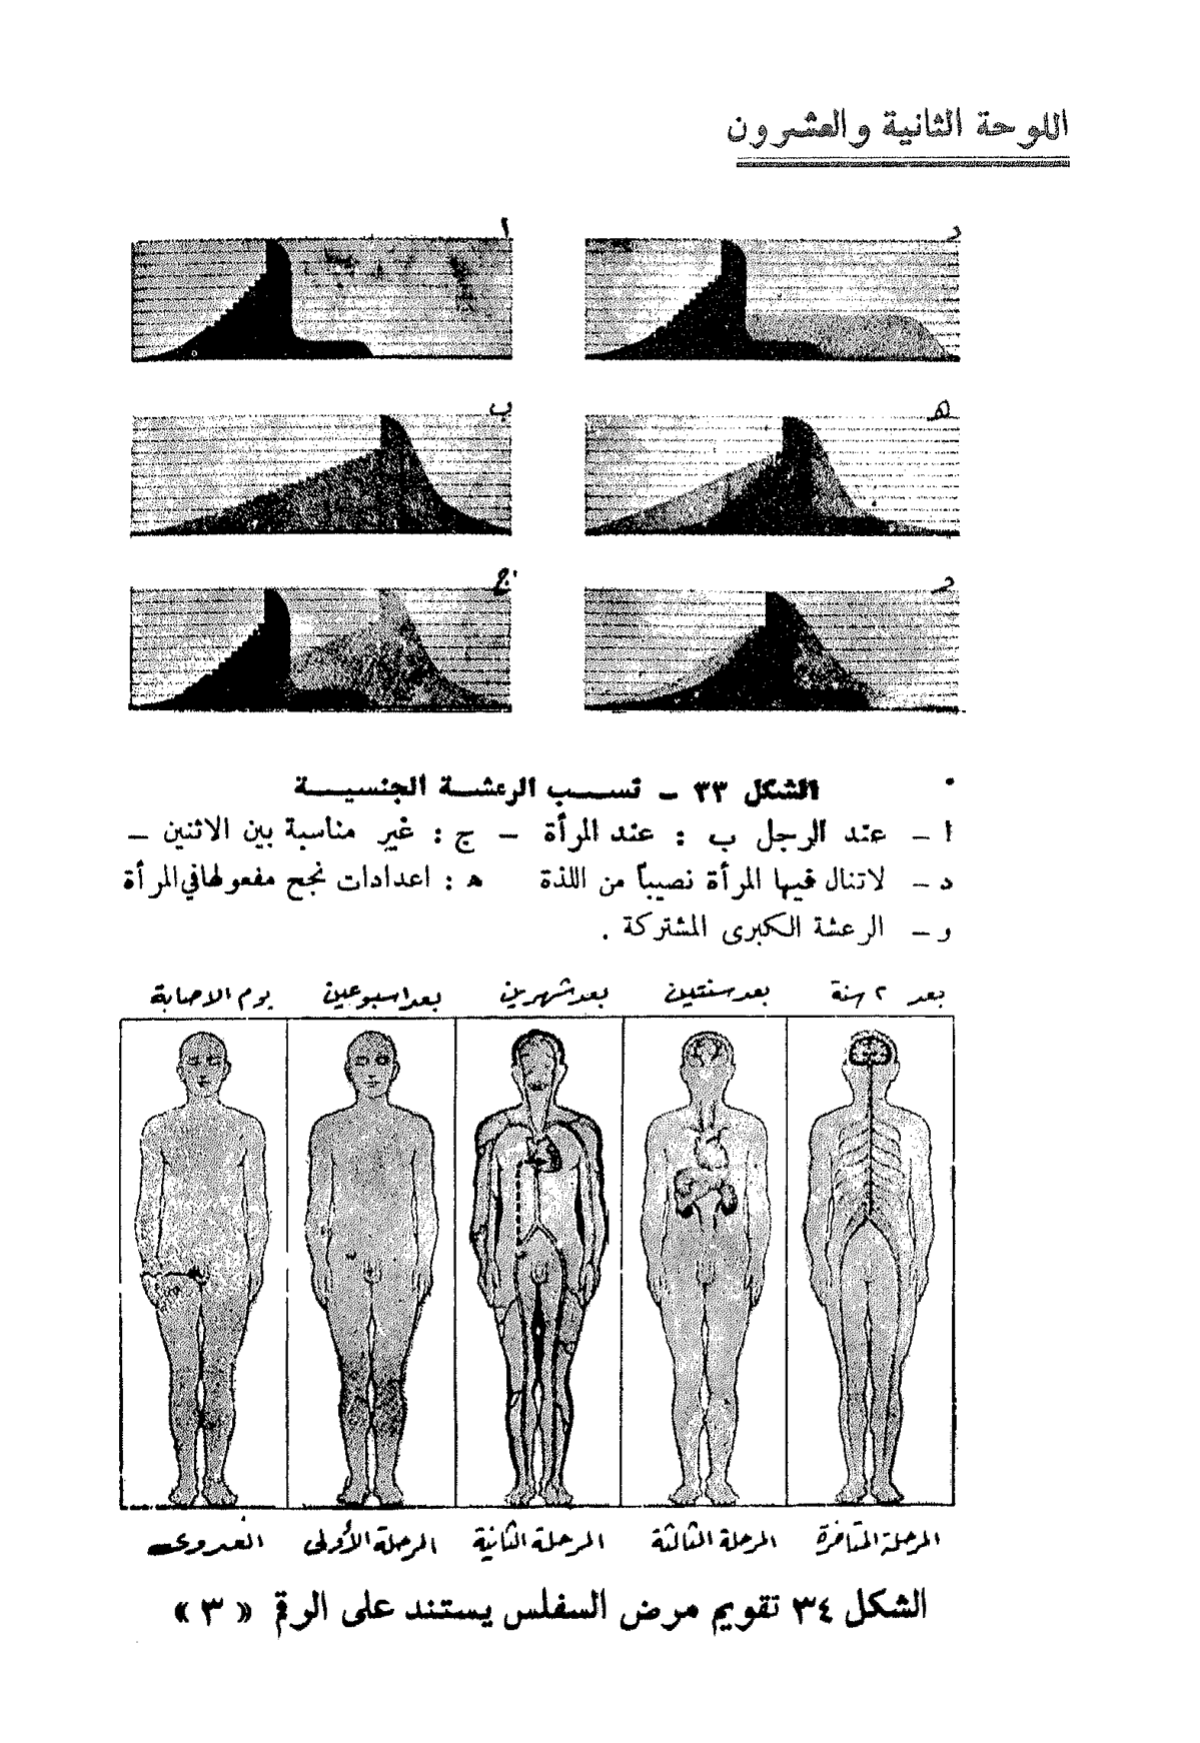 اللوحة الثانية والعشرون
ا
د
ب
ه
ج
و
الشكل ٣٣ – تسبب الرعشة الجنسية
ا – عند الرجل ب : عند المرأة – ج : غير مناسبة بين الاثنين –
د – لاتنال فيها المرأة نصيباً من اللذة ه : اعدادات نجح مفعولها في المرأة
و – الرعشة الكبرى المشتركة .
يوم الاصابة
بعد اسبوعين
بعد شهرين
بعد سنتين
بعد ٢ سنة
العدوى
المرحلة الأولى
المرحلة الثانية
المرحلة الثالثة
المرحلة المتأخرة
الشكل ٣٤ تقويم مرض السفلس يستند على الرقم « ٣ »